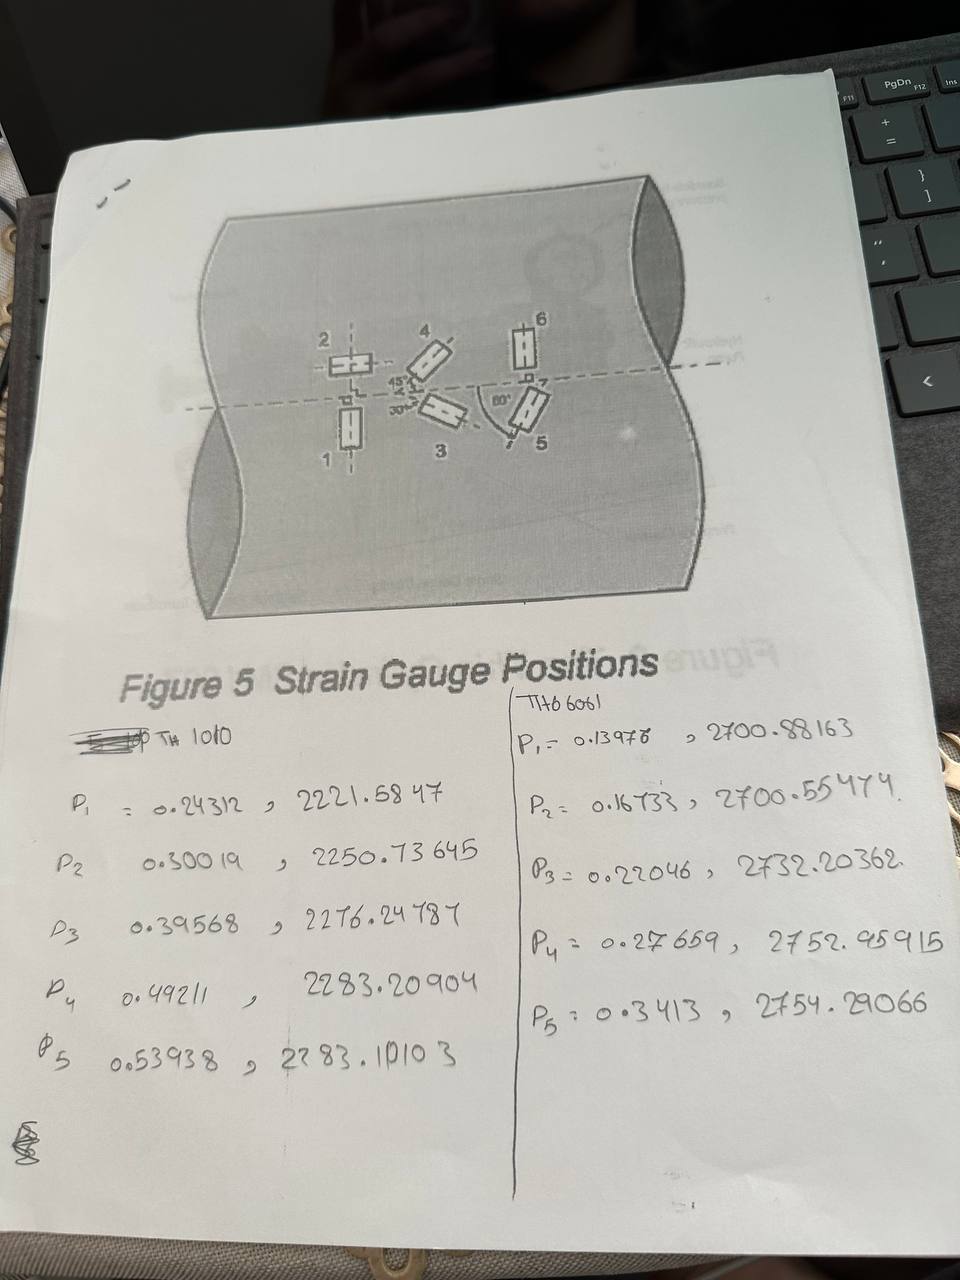 PgDn
F11
F12
Ins
+
=
}
]
"
,
<
2
4
6
45°
30°
60°
1
3
5
Figure 5 Strain Gauge Positions
TH 1010
P1 = 0.24312 , 2221.5847
P2 0.30019 , 2250.73645
P3 0.39568 , 2276.24787
P4 0.49211 , 2283.20904
P5 0.53938 , 2283.10103
6061
P1 = 0.13978 , 2700.88163
P2 = 0.16733, 2700.55474.
P3 = 0.22046 , 2732.20362.
P4 = 0.27659, 2752.95915
P5 = 0.3413 , 2754.29066